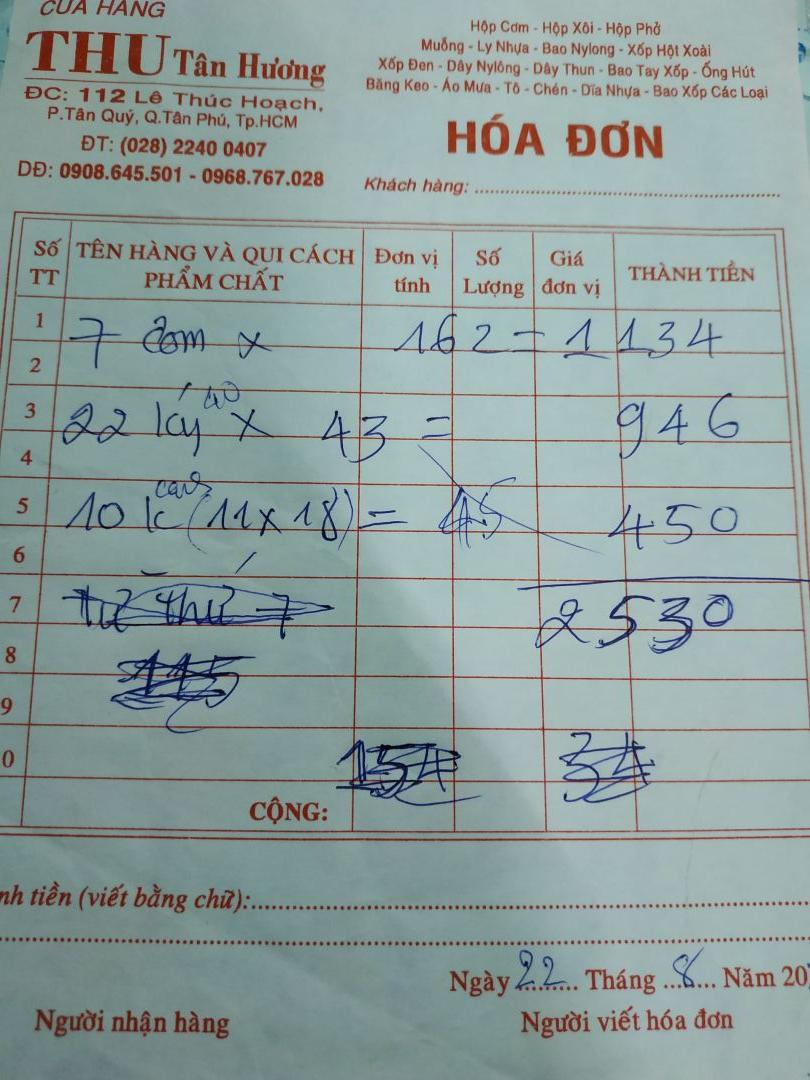 CỬA HÀNG
THU Tân Hương
ĐC: 112 Lê Thúc Hoạch,
P.Tân Quý, Q.Tân Phú, Tp.HCM
ĐT: (028) 2240 0407
DĐ: 0908.645.501 - 0968.767.028
Hộp Cơm - Hộp Xôi - Hộp Phở
Muỗng - Ly Nhựa - Bao Nylong - Xốp Hột Xoài
Xốp Đen - Dây Nylông - Dây Thun - Bao Tay Xốp - Ống Hút
Băng Keo - Áo Mưa - Tô - Chén - Dĩa Nhựa - Bao Xốp Các Loại
HÓA ĐƠN
Khách hàng:
Số TT
TÊN HÀNG VÀ QUI CÁCH PHẨM CHẤT
Đơn vị tính
Số Lượng
Giá đơn vị
THÀNH TIỀN
1
7 cơm x 162 = 1134
2
3
22 ký 40 x 43 = 946
4
5
10 k (11x18) = 45 450
6
7
2530
8
9
0
CỘNG:
nh tiền (viết bằng chữ):
Ngày 22 Tháng 8 Năm 20
Người nhận hàng
Người viết hóa đơn